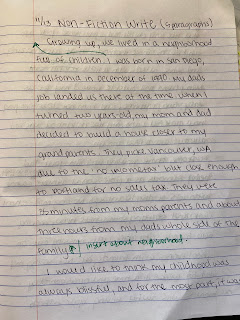 11/13 Non-Fiction Write (5 paragraphs)
Growing up, we lived in a neighborhood
full of children. I was born in San Diego,
California in December of 1990. My dads
job landed us there at the time. When I
turned two years old, my mom and dad
decided to build a house closer to my
grandparents. They picked Vancouver, WA
due to the "no income tax" but close enough
to Portland for no sales tax. They were
minutes from my moms parents and about
three hours from my dads whole side of the
family. Insert about neighborhood.
I would like to think my childhood was
always blissful, and for the most part, it was